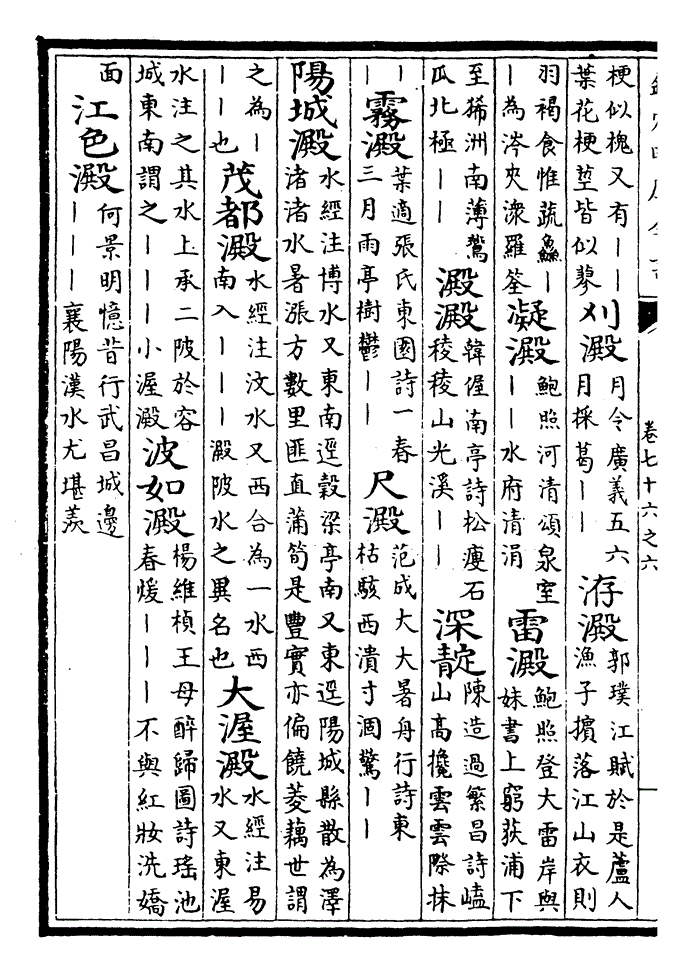 卷七十六之六
梗似槐又有丨丨
葉花梗莖皆似蓼
刈澱
月令廣義五六
月採葛丨丨
洊澱
郭璞江賦於是蘆人
漁子擯落江山衣則
羽褐食惟蔬鱻丨
丨為岑夾潨羅筌
凝澱
鮑照河清頌泉室
丨丨水府清涓
雷澱
鮑照登大雷岸與
妹書上窮荻浦下
至狶洲南薄鷰
瓜北極丨丨
澱澱
韓偓南亭詩松瘦石
稜稜山光溪丨丨
深靛
陳造過繁昌詩嗑
山高攙雲雲際抹
丨
丨
霧澱
葉適張氏東園詩一春
三月雨亭樹鬱丨丨
尺澱
范成大大暑舟行詩東
枯駭西潰寸涸驚丨丨
陽城澱
水經注博水又東南逕穀梁亭南又東逕陽城縣散為澤
渚渚水暑漲方數里匪直蒲筍是豐實亦偏饒菱藕世謂
之為丨
丨丨也
茂都澱
水經注汶水又西合為一水西
南入丨丨丨澱陂水之異名也
大渥澱
水經注易
水又東渥
水注之其水上承二陂於容
城東南謂之丨丨丨小渥澱
波如澱
楊維楨王母醉歸圖詩瑤池
春煖丨丨丨不與紅妝洗嬌
面
江色澱
何景明憶昔行武昌城邊
丨丨丨襄陽漢水尤堪羨